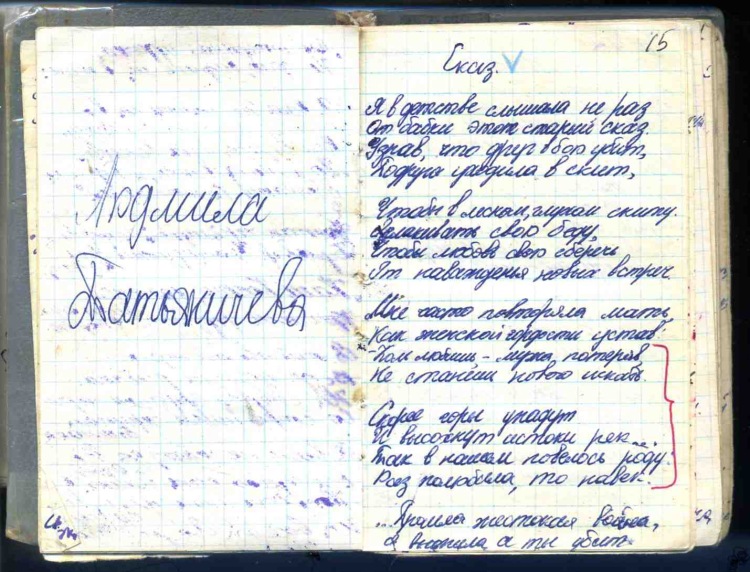 Людмила
Татьяничева
15
Сказ.
Я в детстве слышала не раз
От бабки этот старый сказ.
Узнав, что друг в бою убит,
Подруга уходила в скит,
Чтобы в лесном, глухом скиту
Оплакивать свою беду,
Чтобы любовь свою сберечь
От наваждения новых встреч.
Мне часто повторяла мать,
Как женской гордости устав:
- Коль любишь - мужа потеряв,
Не станешь нового искать.
Скорее горы упадут
И высохнут истоки рек...
Так в нашем повелось роду:
Раз полюбила, то навек.
...Прошла жестокая война,
Я выжила а ты убит.